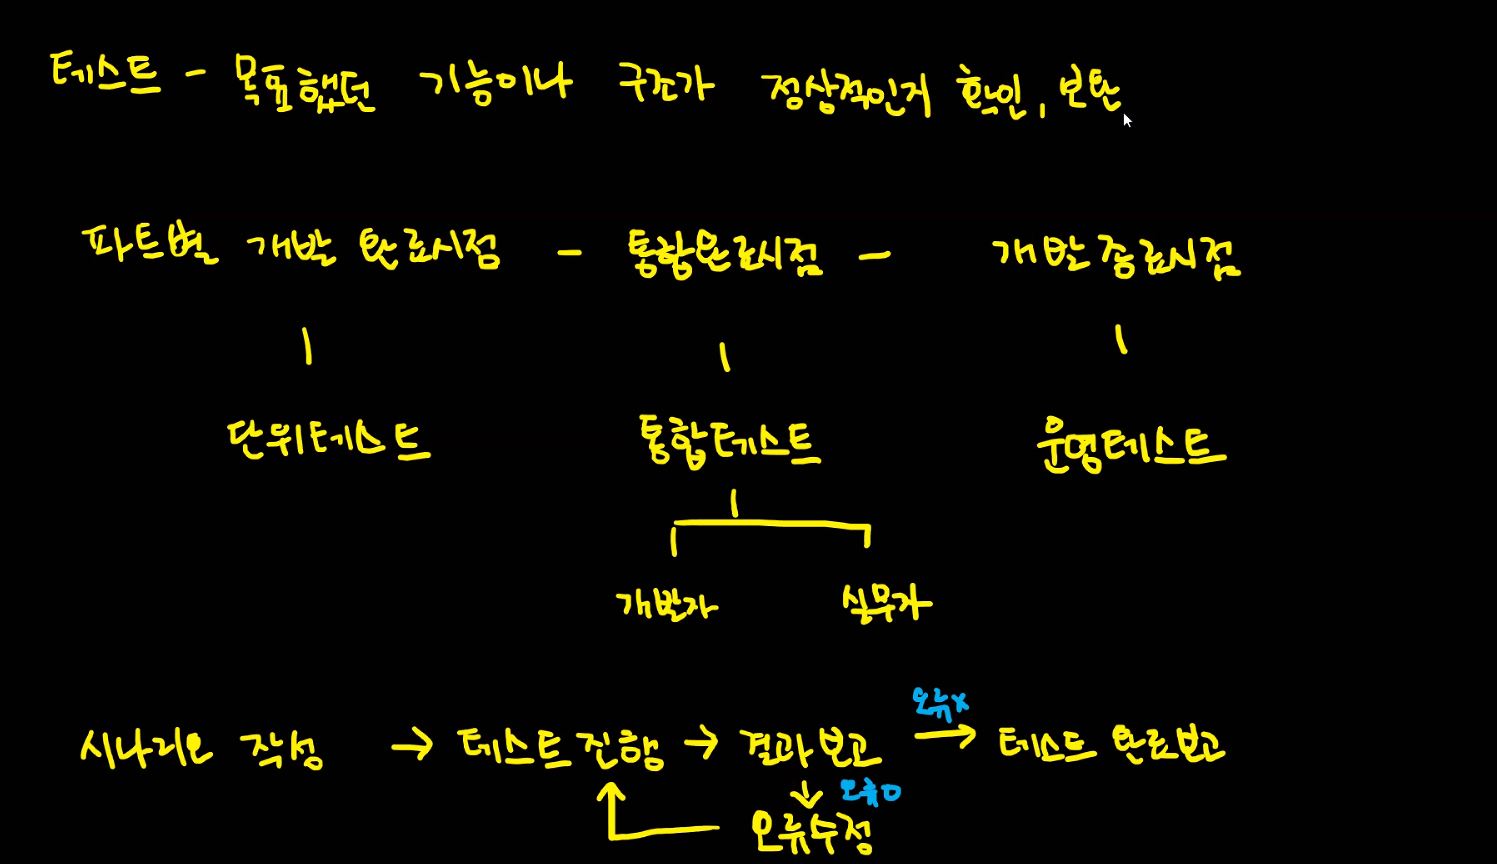 테스트 - 목표했던 기능이나 구조가 정상적인지 확인, 보완
파트별 개발 완료시점 - 통합완료시점 - 개발종료시점
단위테스트 통합테스트 운영테스트
개발자 실무자
오류x
시나리오 작성 → 테스트진행 → 결과보고 → 테스트 완료보고
오류o
오류수정